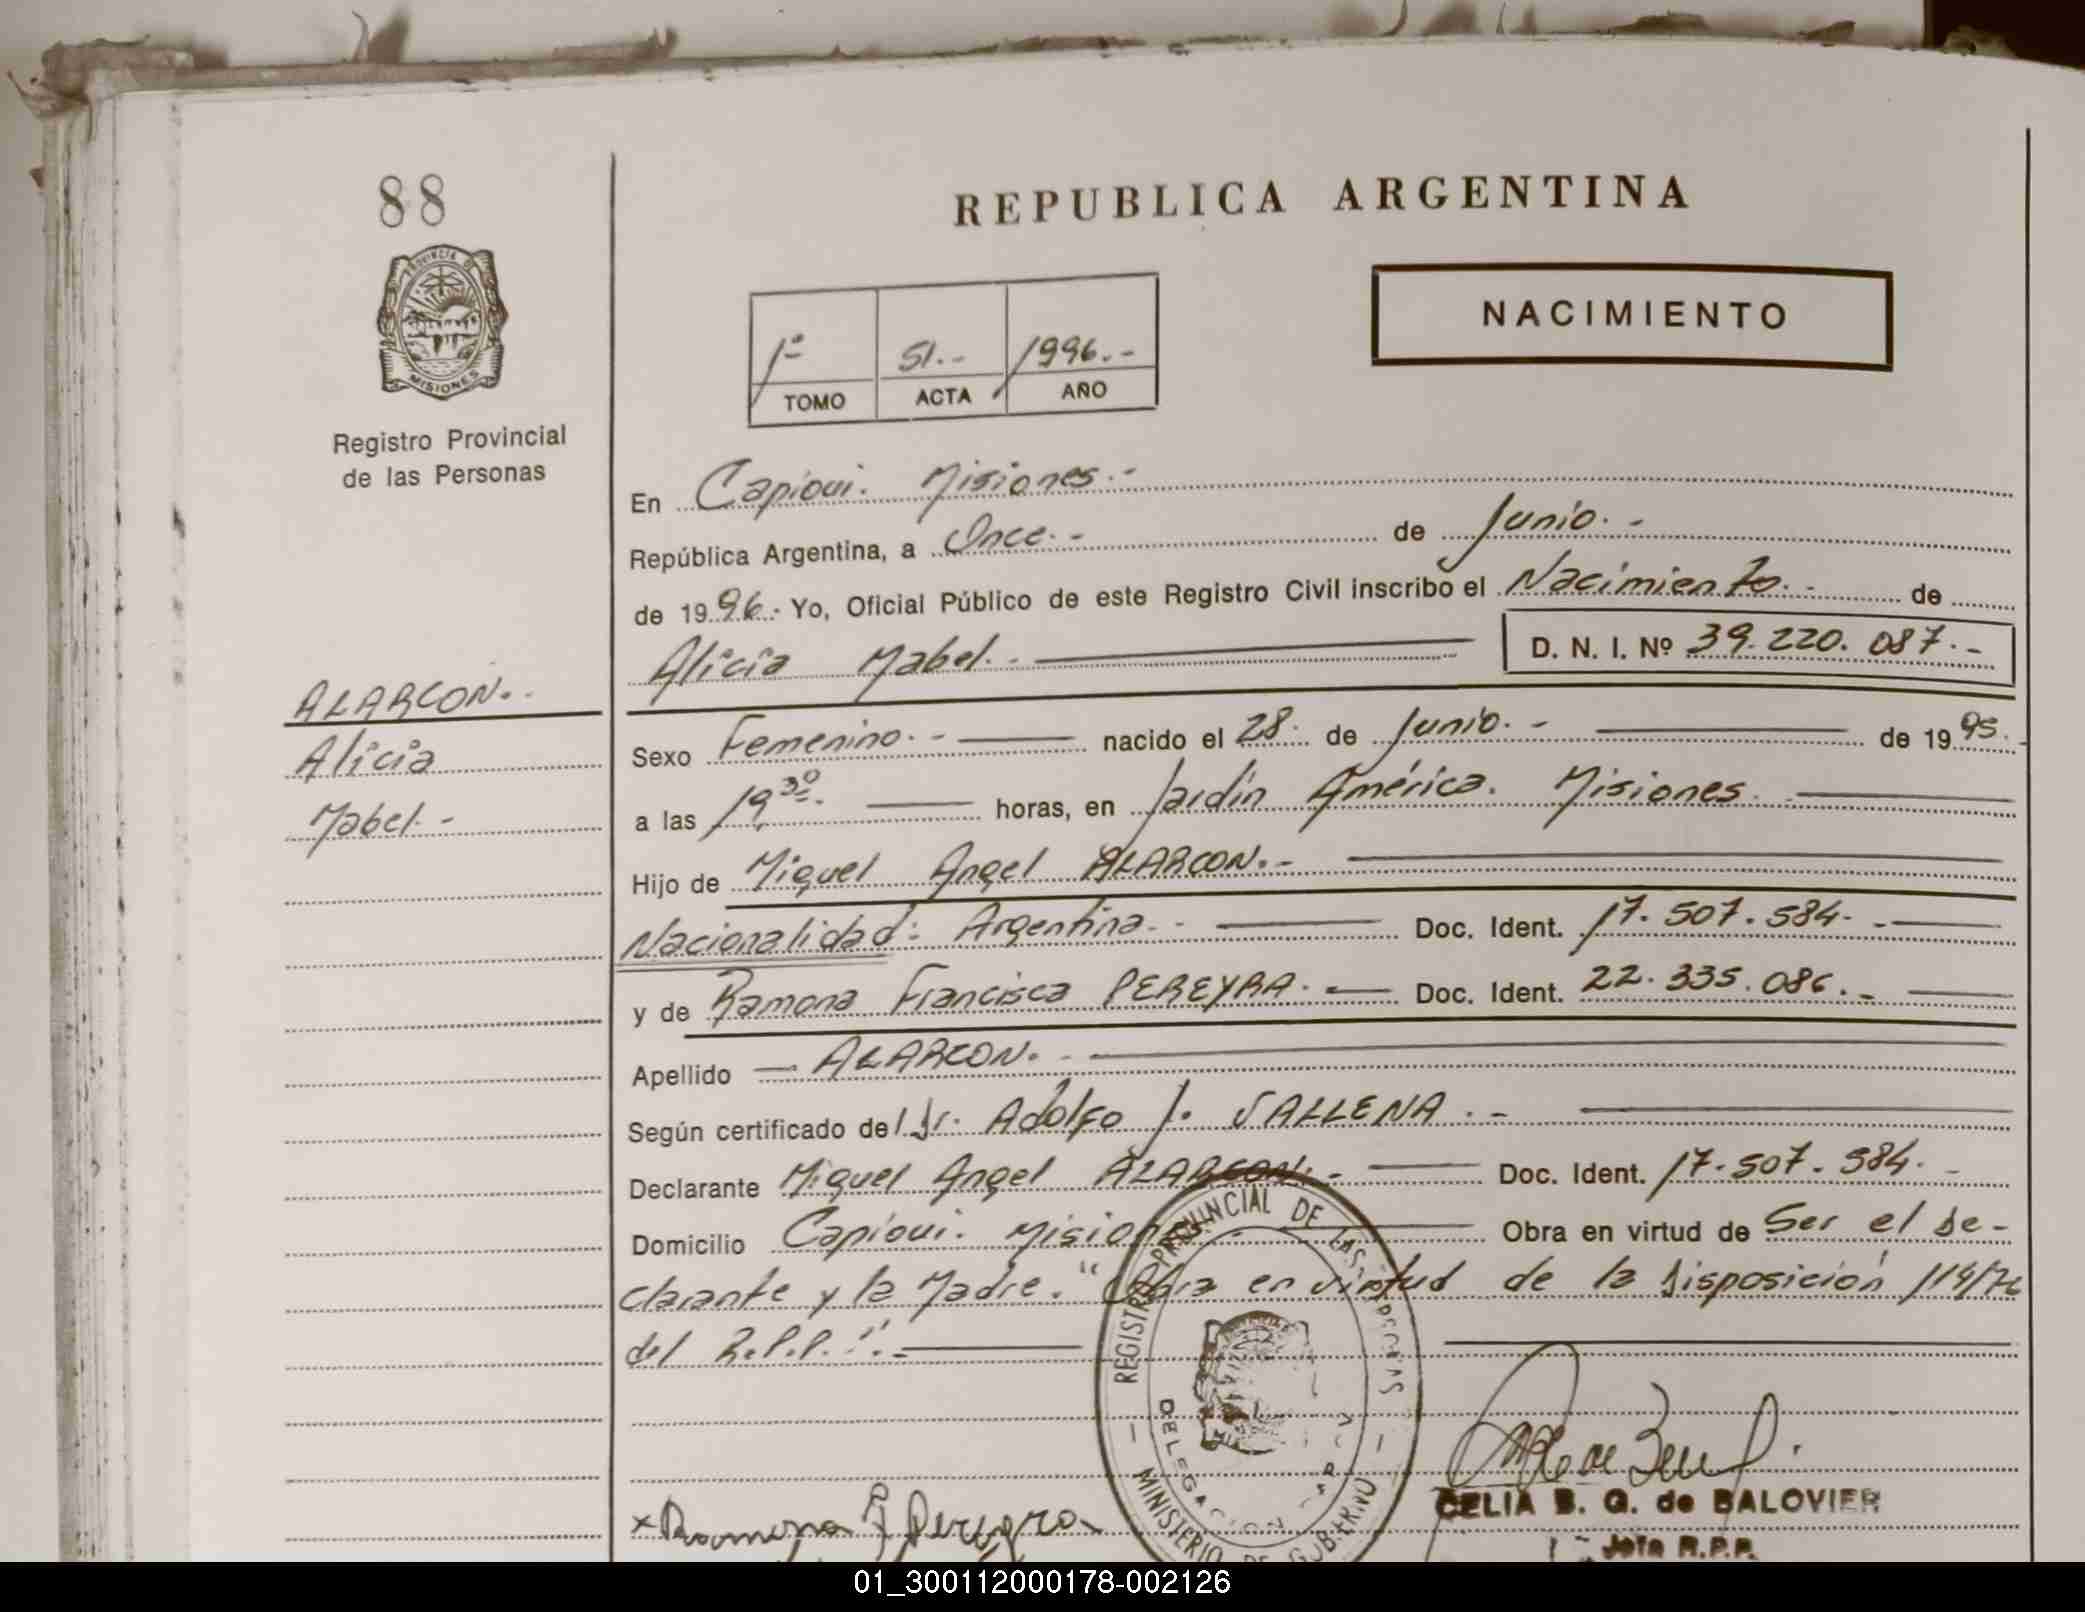 88
REPUBLICA ARGENTINA
PROVINCIA DE
MISIONES
Registro Provincial
de las Personas
1º 51.- 1996.-
TOMO ACTA AÑO
NACIMIENTO
En Capioui. Misiones.-
República Argentina, a Once.- de Junio.-
de 1996.- Yo, Oficial Público de este Registro Civil inscribo el Nacimiento.- de
Alicia Mabel.- D. N. I. Nº 39.220.087.-
ALARCON.-
Alicia
Mabel.-
Sexo Femenino.- nacido el 28. de Junio.- de 1995.-
a las 19 30.- horas, en Jardín América. Misiones.
Hijo de Miguel Angel ALARCON.-
Nacionalidad: Argentina.- Doc. Ident. 17.507.584.-
y de Ramona Francisca PEREYRA.- Doc. Ident. 22.335.086.-
Apellido ALARCON.-
Según certificado del Dr. Adolfo J. SALLENA.-
Declarante Miguel Angel ALARCON.- Doc. Ident. 17.507.584.-
Domicilio Capioui. Misiones. Obra en virtud de Ser el De-
clarante y la Madre. "Obra en virtud de la Disposición 119/76
del R.P.P.".-
REGISTRO PROVINCIAL DE LAS PERSONAS
DELEGACION
MINISTERIO DE GOBIERNO
x Ramona F Pereyra
CELIA B. G. de BALOVIER
Jefa R.P.P.
01_300112000178-002126